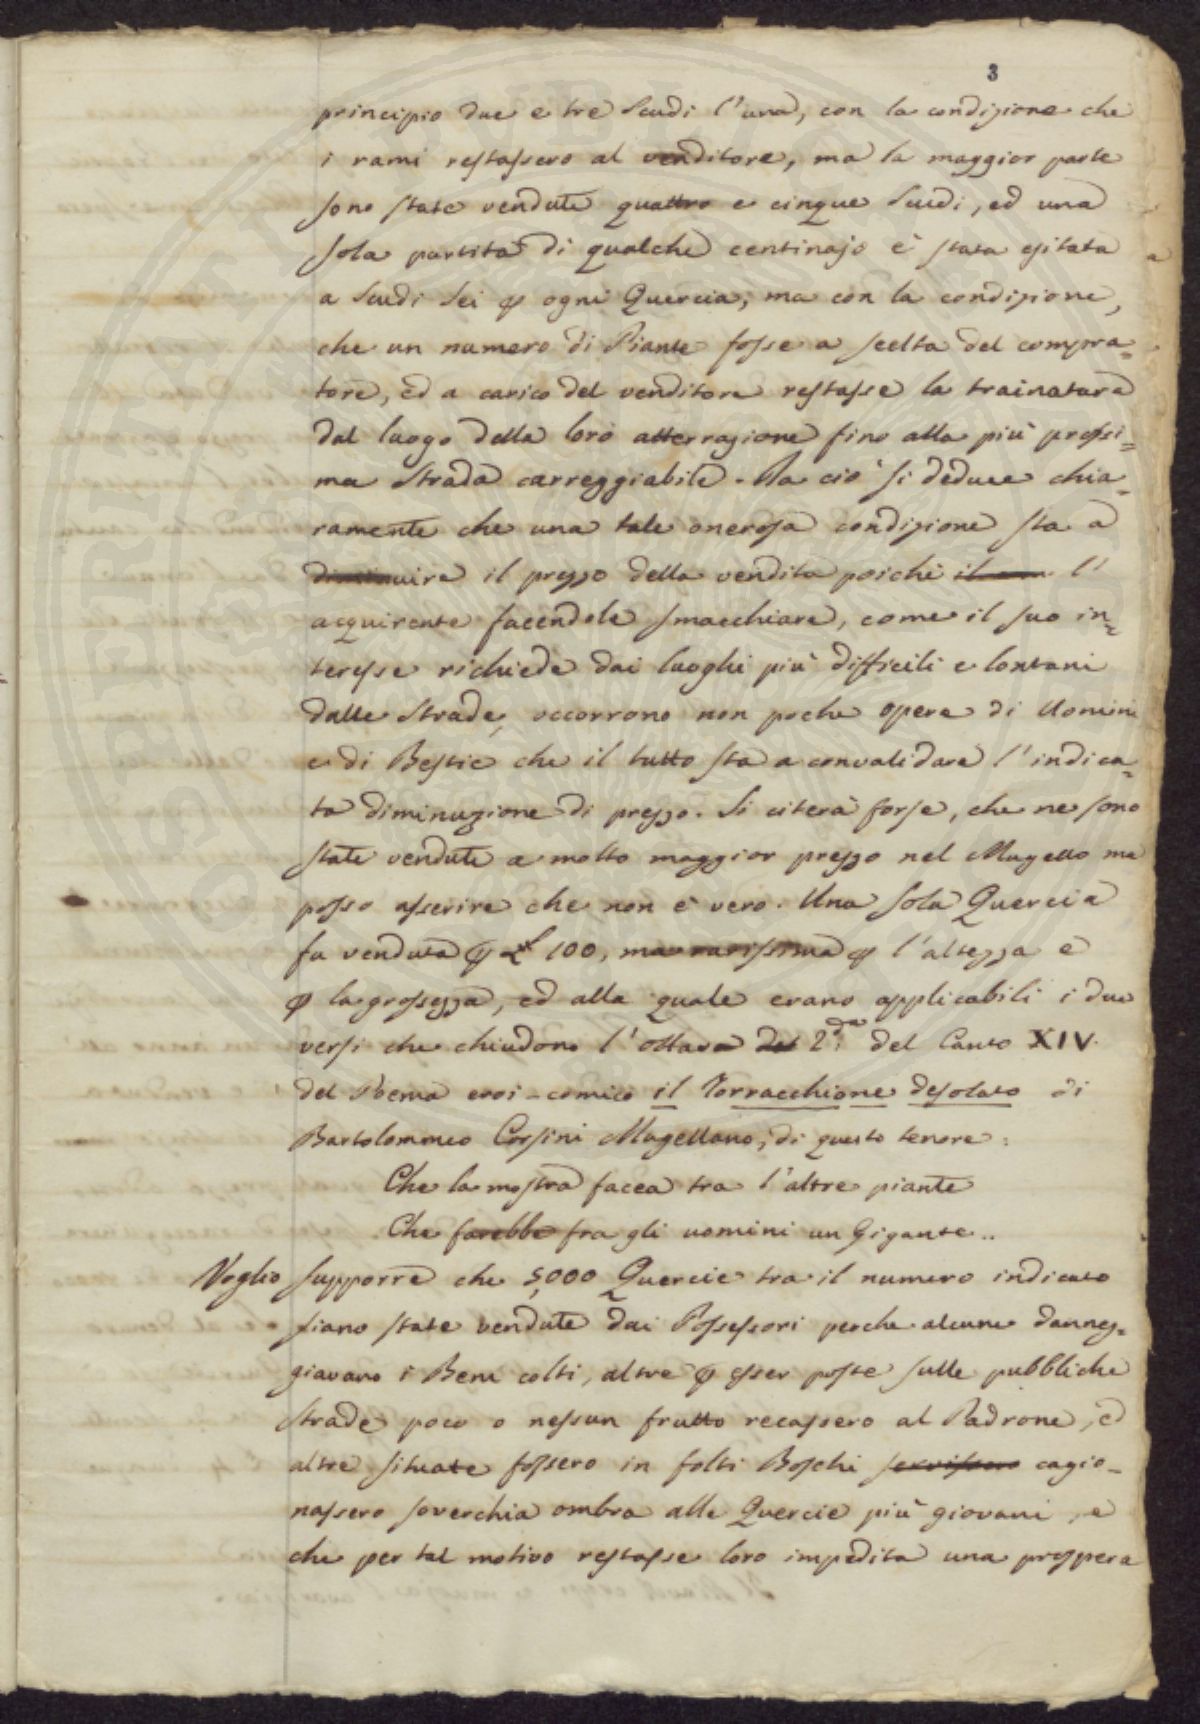 3
principio due e tre Scudi l'una, con la condizione che
i rami restassero al venditore, ma la maggior parte
sono state vendute quattro e cinque Scudi, ed una
sola partita di qualche centinajo è stata esitata
a Scudi Sei ogni Quercia, ma con la condizione,
che un numero di Piante fosse a scelta del compra=
tore, ed a carico del venditore restasse la trainatura
dal luogo della loro atterrazione fino alla più prossi=
ma Strada carreggiabile. Da ciò si deduce chia=
ramente che una tale onerosa condizione sta a
diminuire il prezzo della vendita poichè l'
acquirente facendole smacchiare, come il suo in=
teresse richiede dai luoghi più difficili e lontani
dalle Strade, occorrono non poche opere di Uomini
e di Bestie che il tutto sta a convalidare l'indica=
ta diminuzione di prezzo. Si citerà forse, che ne sono
state vendute a molto maggior prezzo nel Mugello ma
posso asserire che non è vero. Una sola Quercia
fu venduta 100, ma rarissima l'altezza e
la grossezza, ed alla quale erano applicabili i due
versi che chiudono l'ottava 2.da del Canto XIV.
del Poema eroi-comico il Torracchione desolato di
Bartolommeo Corsini Mugellano, di questo tenore:
Che la mostra facea tra l'altre piante
Che farebbe fra gli uomini un Gigante..
Voglio supporre che 5,000 Quercie tra il numero indicato
siano state vendute dai Possessori perche alcune danneg=
giavano i Beni colti, altre esser poste sulle pubbliche
Strade poco o nessun frutto recassero al Padrone, ed
altre situate fossero in folti Boschi cagio=
nassero soverchia ombra alle Quercie più giovani, e
che per tal motivo restasse loro impedita una prospera